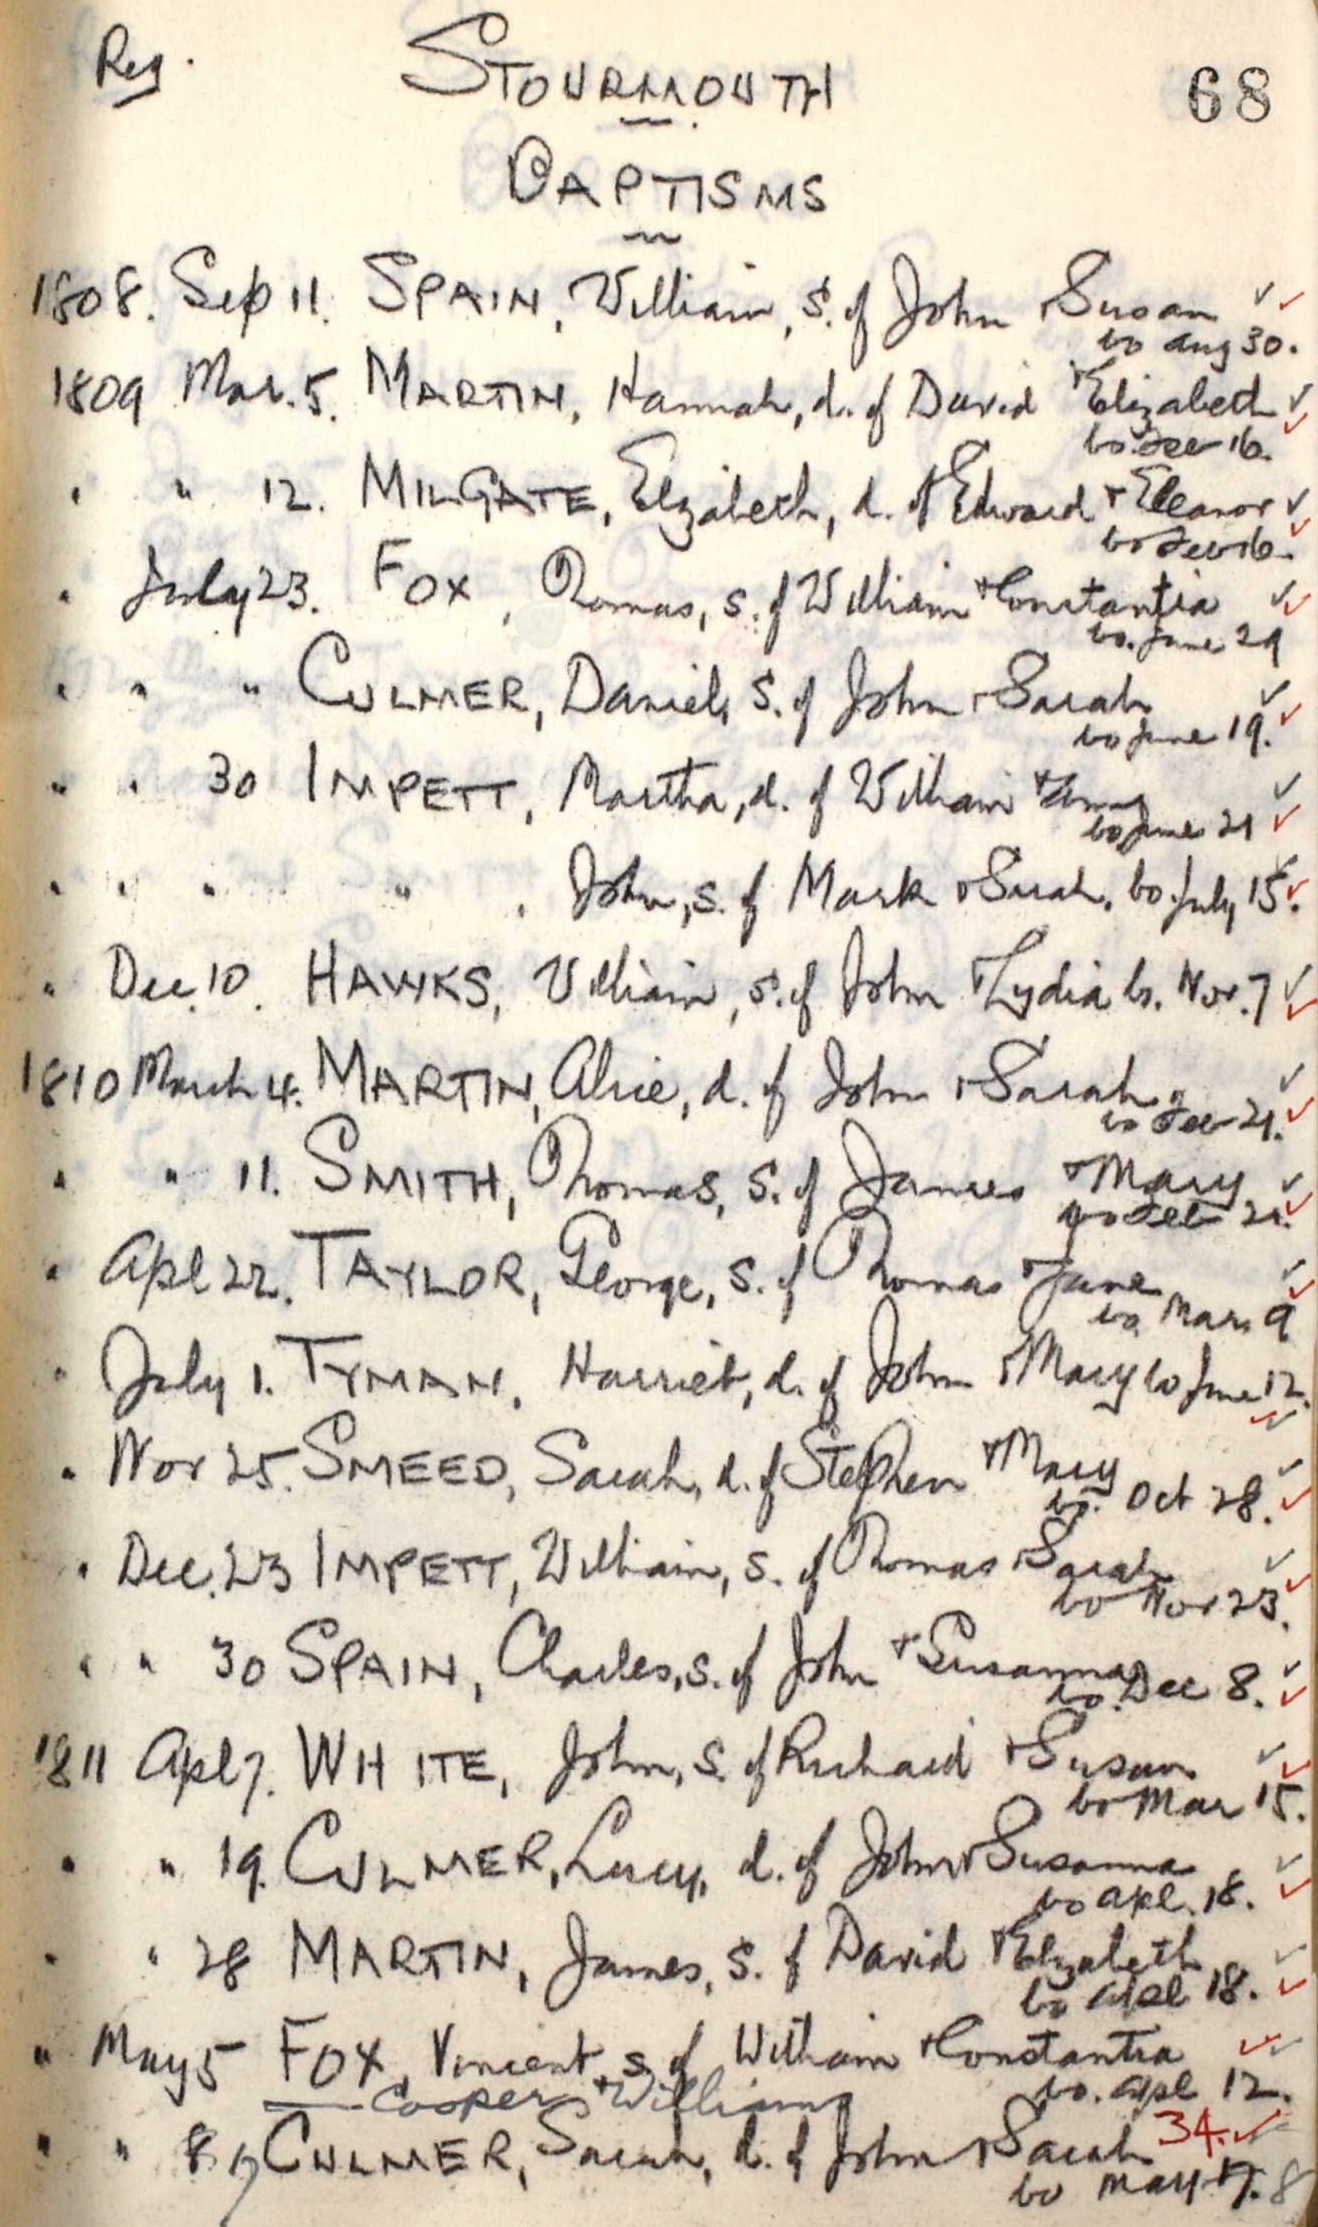 Reg. STOURMOUTH 68
BAPTISMS
1808. Sep 11. SPAIN, William, s. of John & Susan
bo Aug 30.
1809 Mar. 5. MARTIN, Hannah, d. of David & Elizabeth
bo. Feb 16.
" " 12. MILGATE, Elizabeth, d. of Edward & Eleanor
bo Feb 16.
" July 23. FOX, Thomas, s. of William & Constantia
bo. June 29
" " " CULMER, Daniel, s. of John & Sarah
bo June 19.
" " 30 IMPETT, Martha, d. of William &
bo June 21
" " " " , John, s. of Mark & Sarah. bo July 15.
" Dec. 10. HAWKS, William, s. of John & Lydia b. Nov. 7
1810 March 4. MARTIN, Alice, d. of John & Sarah
bo Feb 21.
" " 11. SMITH, Thomas, s. of James & Mary
bo Feb 21.
" Apl 22. TAYLOR, George, s. of Thomas & Jane
bo Mar. 9
" July 1. TYMAN, Harriet, d. of John & Mary bo June 12.
" Nov 25. SMEED, Sarah, d. of Stephen & Mary
bo. Oct 28.
" Dec. 23 IMPETT, William, s. of Thomas & Sarah
bo Nov 23.
" " 30 SPAIN, Charles, s. of John & Susanna
bo. Dec 8.
1811 Apl 7. WHITE, John, s. of Richard & Susan
bo Mar 15.
" " 19. CULMER, Lucy, d. of John & Susanna
bo Apl. 18.
" " 28 MARTIN, James, s. of David & Elizabeth
bo Apl 18.
" May 5 FOX, Vincent s. of William & Constantia
bo. Apl 12.
Cooper & Williams
" " 8 CULMER, Sarah, d. of John & Sarah 34.
bo May 8